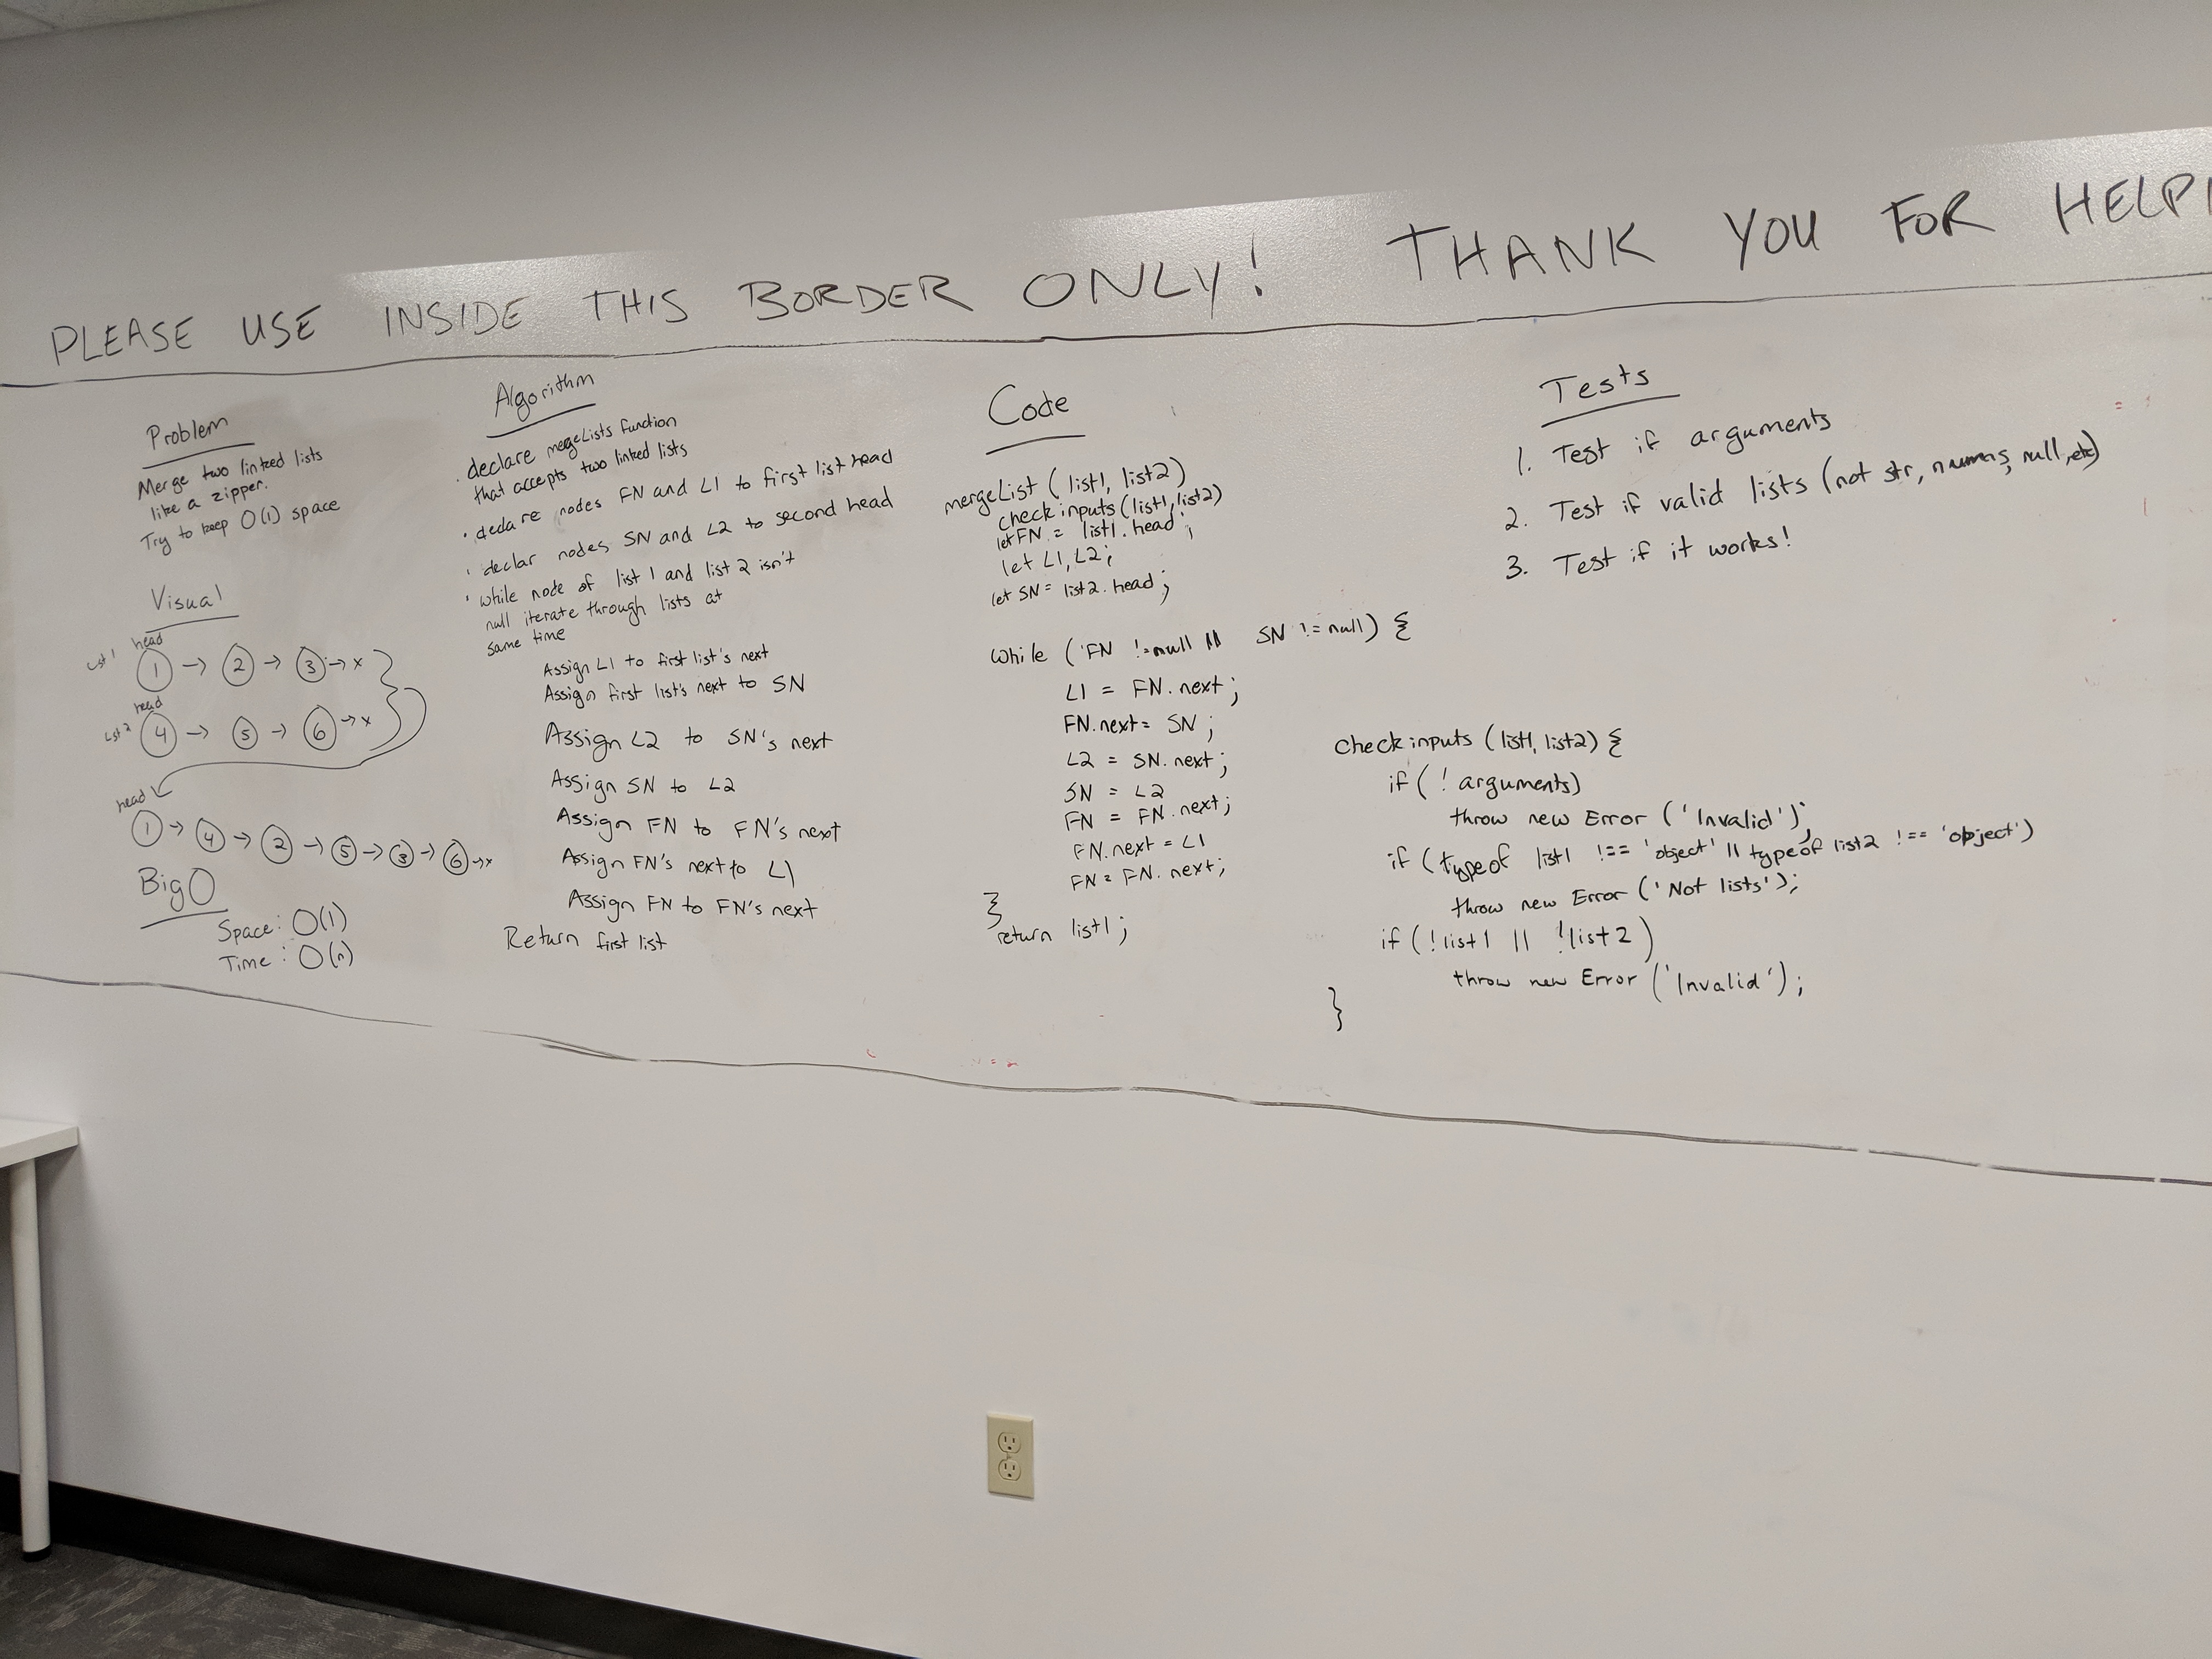 PLEASE USE INSIDE THIS BORDER ONLY! THANK YOU FOR HELPI
Problem
Merge two linked lists
like a zipper.
Try to keep O(1) space
Visual
head
Lst 1
1 → 2 → 3 → x
head
Lst 2
4 → 5 → 6 → x
head
1 → 4 → 2 → 5 → 3 → 6 → x
Big O
Space: O(1)
Time: O(n)
Algorithm
· declare mergeLists function
that accepts two linked lists
· declare nodes FN and L1 to first list head
· declar nodes SN and L2 to second head
· while node of list 1 and list 2 isn't
null iterate through lists at
same time
Assign L1 to first list's next
Assign first list's next to SN
Assign L2 to SN's next
Assign SN to L2
Assign FN to FN's next
Assign FN's next to L1
Assign FN to FN's next
Return first list
Code
mergeList (list1, list2)
check inputs (list1, list2)
let FN = list1.head;
let L1, L2;
let SN = list2.head;
while (FN != null || SN != null) {
L1 = FN.next;
FN.next = SN;
L2 = SN.next;
SN = L2
FN = FN.next;
FN.next = L1
FN = FN.next;
}
return list1;
Tests
1. Test if arguments
2. Test if valid lists (not str, nums, null, etc)
3. Test if it works!
check inputs (list1, list2) {
if (! arguments)
throw new Error ('Invalid');
if (typeof list1 !== 'object' || typeof list2 !== 'object')
throw new Error ('Not lists');
if (!list1 || !list2)
throw new Error ('Invalid');
}